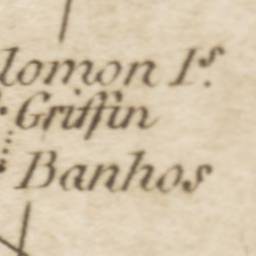 lomon I.s
Griffin
Banhos